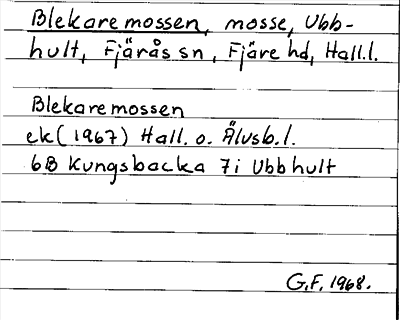 Blekaremossen, mosse, Ubb-
hult, Fjärås sn, Fjäre hd, Hall.l.
Blekaremossen
ek (1967) Hall. o. Älvsb.l.
6B Kungsbacka 7i Ubbhult
G.F. 1968.